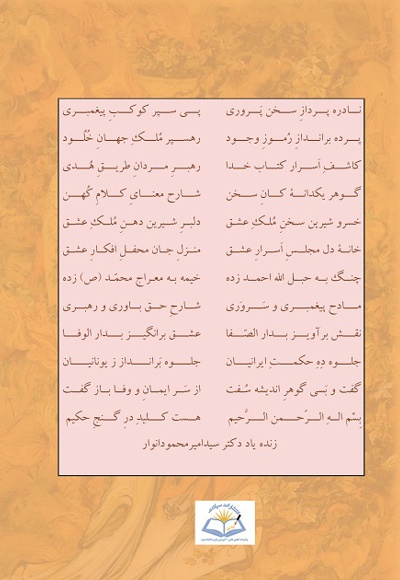 نادره پردازِ سخن پَروری پی سپر کوکبِ پیغمبری
پرده براندازِ رُموزِ وجود رهسپر مُلکِ جهان خُلُود
کاشفِ اَسرار کتاب خدا رهبرِ مردان طریقِ هُدی
گوهر یکدانۀ کانِ سخن شارح معنایِ کلامِ کُهن
خسرو شیرین سخنِ مُلکِ عشق دلبرِ شیرین دهنِ مُلکِ عشق
خانۀ دل مجلسِ اَسرارِ عشق منزلِ جان محفلِ افکارِ عشق
چنگ به حبل الله احمد زده خیمه به معراج محمّد (ص) زده
مادحِ پیغمبری و سَروَری شارحِ حق باوری و رهبری
نقش برآویز بدار الصّفا عشق برانگیز بدار الوفا
جلوه دِهِ حکمتِ ایرانیان جلوه بَرانداز ز یونانیان
گفت و بَسی گوهرِ اندیشه سُفت از سَرِ ایمان و وفا باز گفت
بِسْمِ الهِ الرَّحمنِ الرَّحیم هست کلیدِ درِ گنجِ حکیم
زنده یاد دکتر سیدامیرمحمودانوار